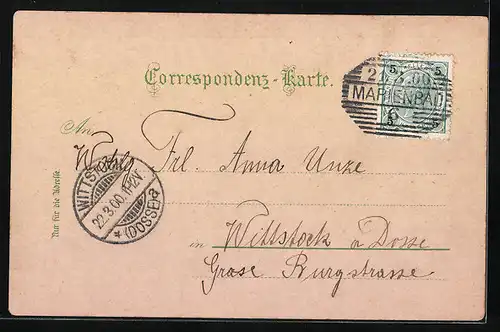 Correspondenz-Karte.
5 5
21.3.00
MARIENBAD
An
Wohlg. Frl. Anna Unze
WITTSTOCK
22.3.00.
* (DOSSE) *
Nur für die Adresse.
in Wittstock a Dosse
Grose Burgstrasse